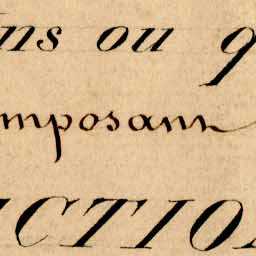 ns ou q
mposann
CTIO